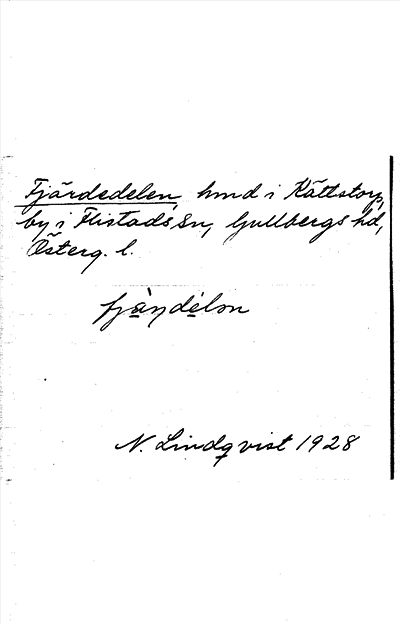 Fjärdedelen, hmd i Kättstorp,
by i Flistads sn, Gullbergs hd,
Österg. l.
fjæ̀ɳdelɔn
N. Lindqvist 1928